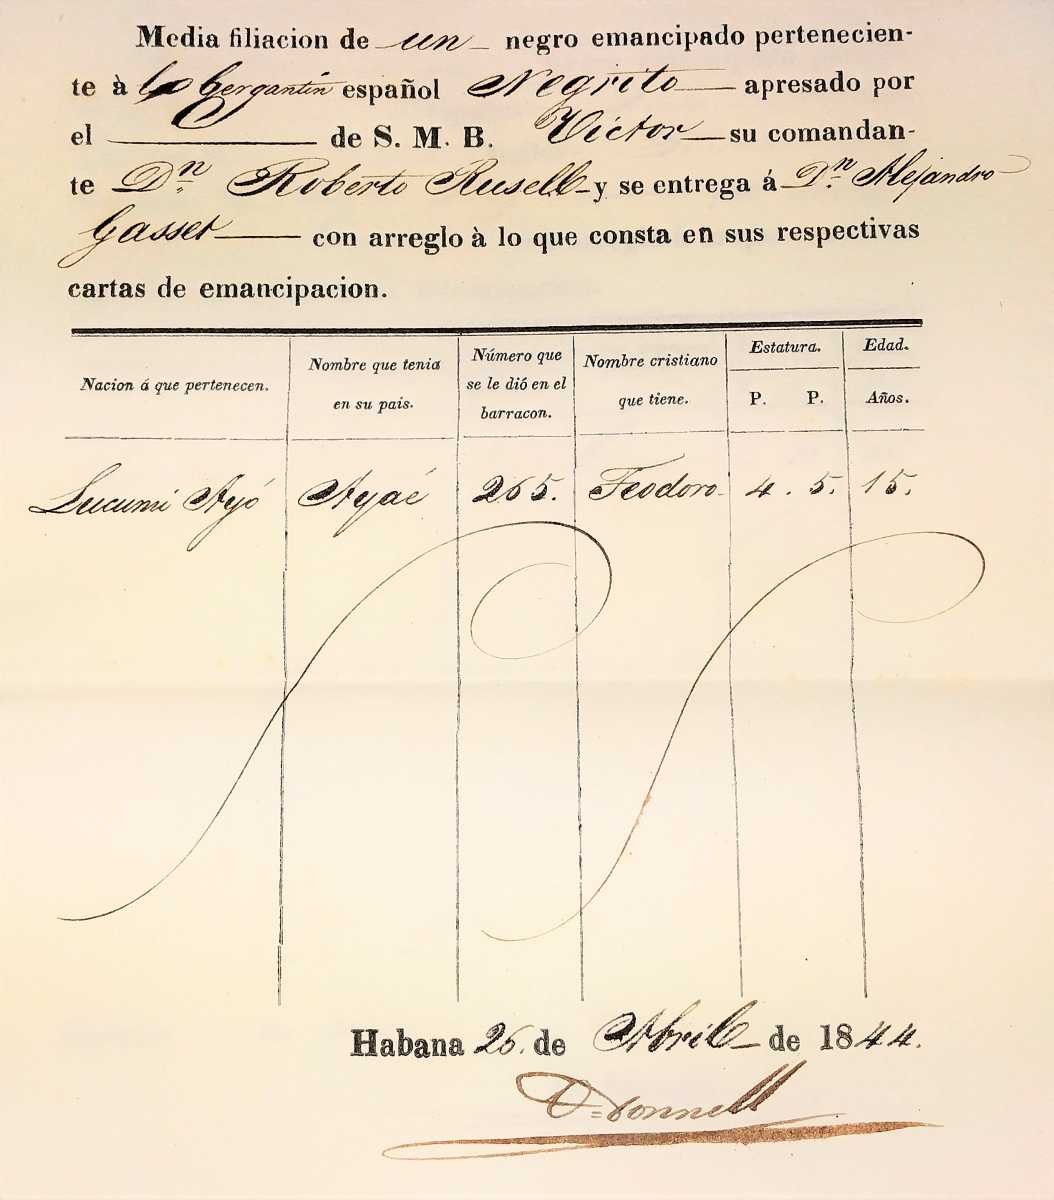 Media filiacion de un negro emancipado pertenecien-
te à bergantin español Negrito apresado por
el de S. M. B. Victor su comandan-
te Dn. Roberto Rusell y se entrega á Dn. Alejandro
Gasset con arreglo à lo que consta en sus respectivas
cartas de emancipacion.
Nacion á que pertenecen. Nombre que tenia en su pais. Número que se le dió en el barracon. Nombre cristiano que tiene. Estatura. P. P. Edad. Años.
Lucumi Ayó Ayaé 265. Teodoro 4. 5. 15.
Habana 26. de Abril de 1844.
O=Donnell